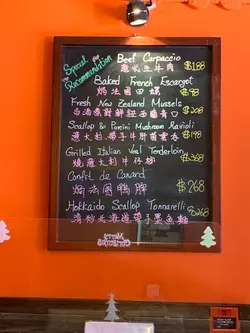 Special
Recommendation
Beef Carpaccio
意式生牛肉 $188
Baked French Escargot
焗法國田螺 $98
Fresh New Zealand Mussels
白酒煮新鮮紐西蘭青口 $208
Scallop & Porcini Mushroom Ravioli
意大利帶子牛肝菌雲吞 $198
Grilled Italian Veal Tenderloin
燒意大利牛仔柳 $368
Confit de Canard
焗法國鴨脾 $268
Hokkaido Scallop Tonnarelli
清炒北海道帶子墨魚麵 $268
Merry
Christmas